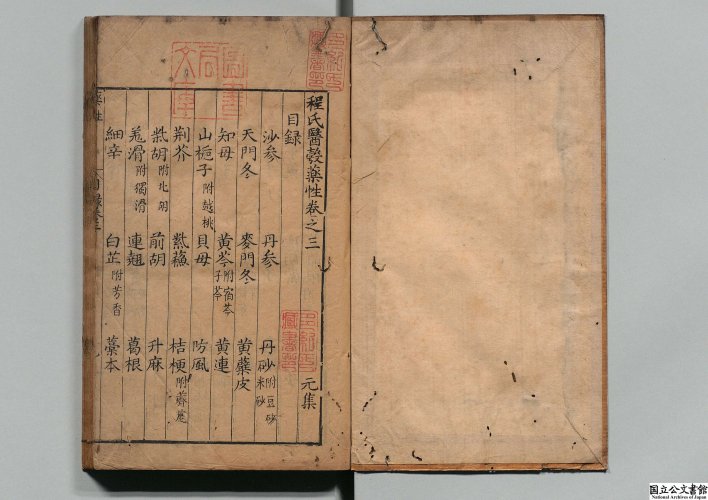 程氏醫彀藥性卷之三
目録 元集
沙参 丹参 丹砂附豆砂米砂
天門冬 麥門冬 黄蘗皮
知母 黄芩附宿芩子芩 黄連
山梔子附越桃 貝母 防風
荆芥 紫蘇 桔梗附薺苨
柴胡附北胡 前胡 升麻
羌滑附獨滑 連翹 葛根
細辛 白芷附芳香 藁本
藥性
國立公文書館
National Archives of Japan